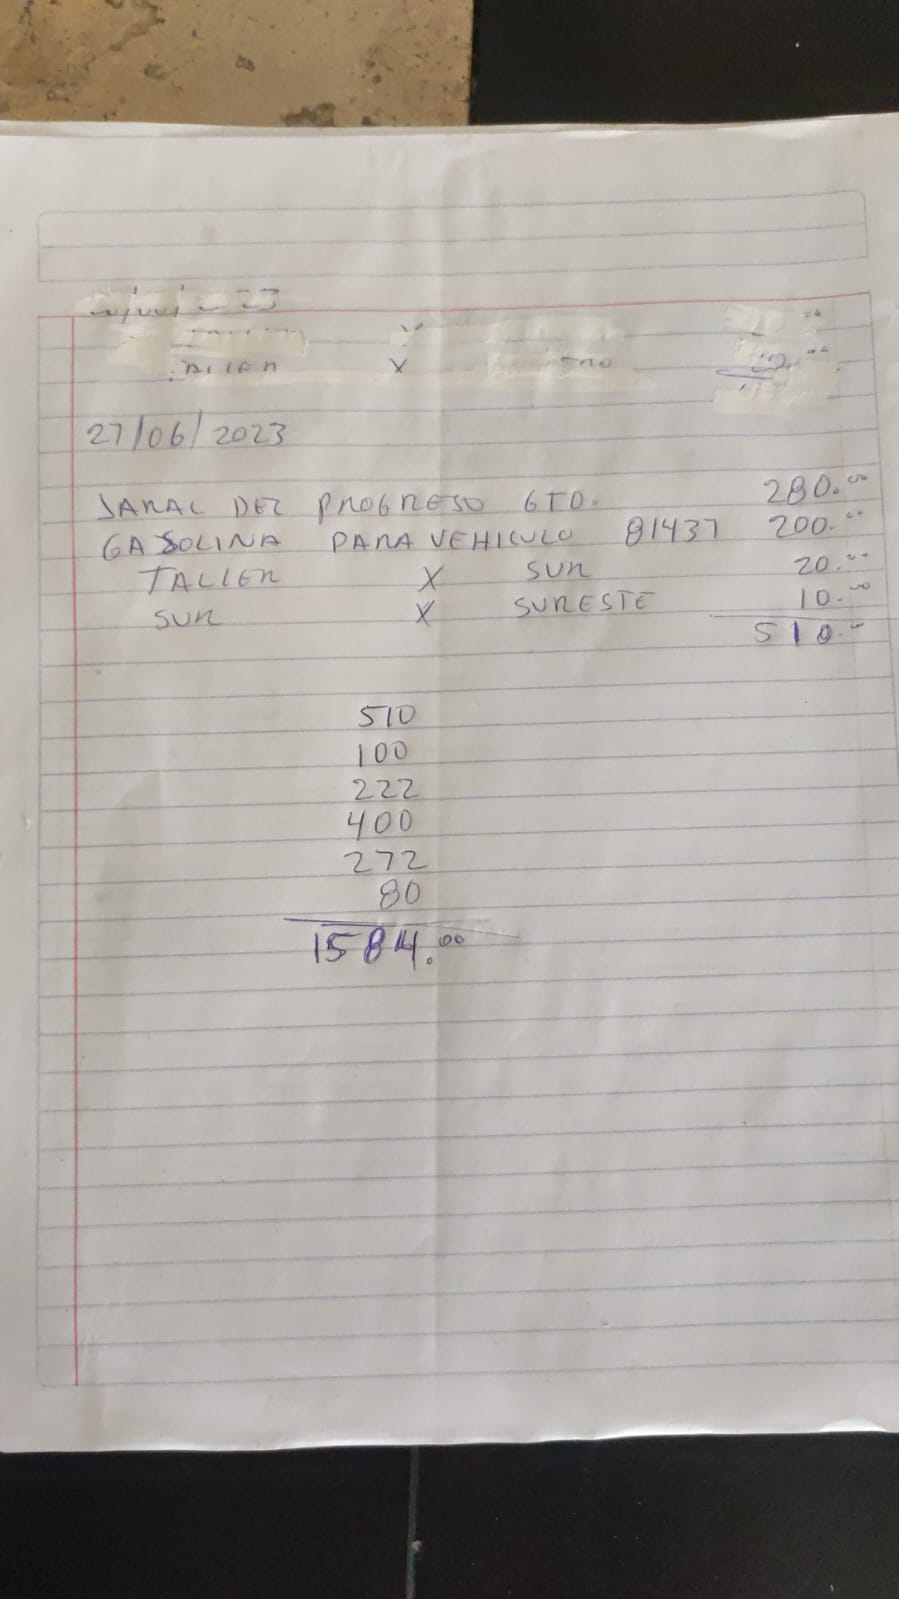 27/06/2023
JARAL DEL PROGRESO GTO. 280.00
GASOLINA PARA VEHICULO 81437 200.00
TALLER X SUR 20.00
SUR X SURESTE 10.00
510.00
510
100
222
400
272
80
1584.00